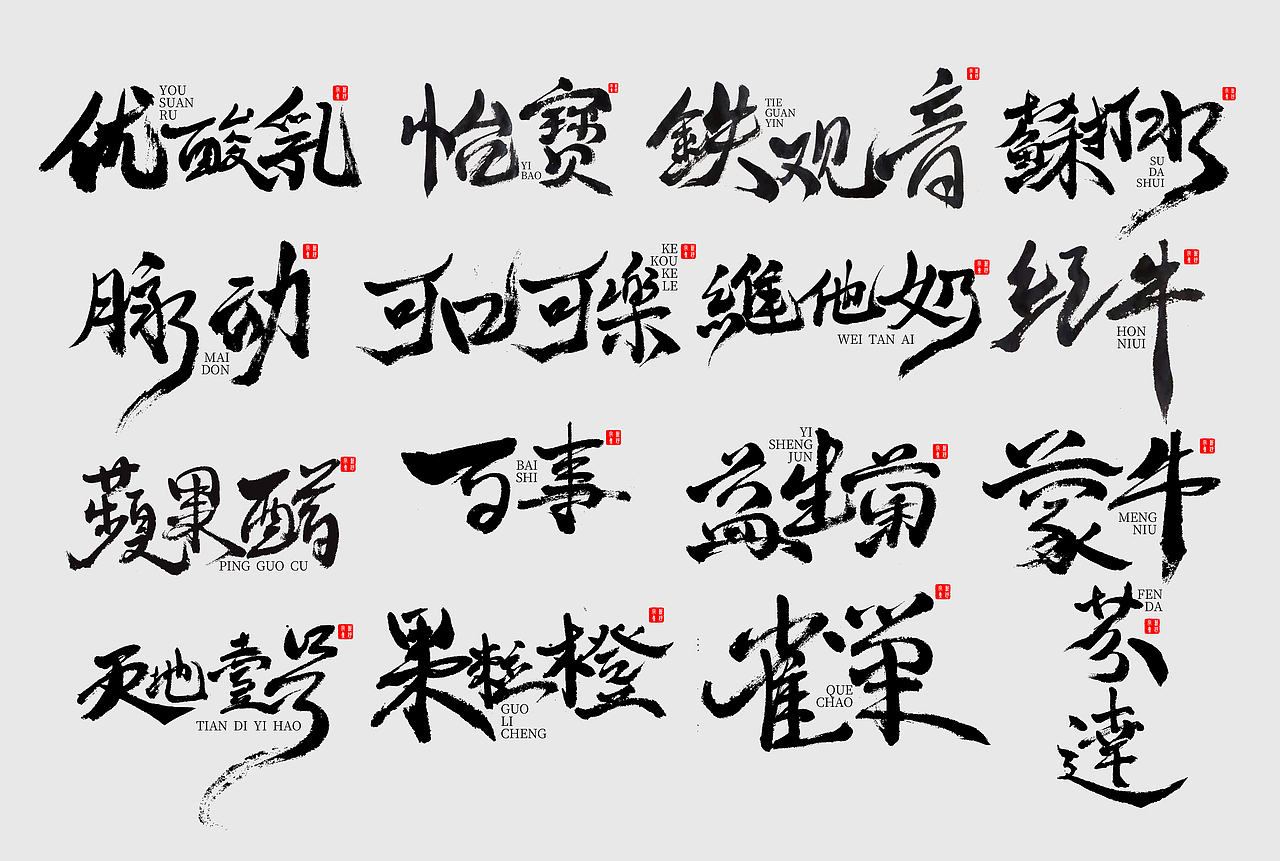 优酸乳
YOU
SUAN
RU
怡寶
YI
BAO
鉄观音
TIE
GUAN
YIN
蘇打水
SU
DA
SHUI
脉动
MAI
DON
可口可樂
KE
KOU
KE
LE
維他奶
WEI TAN AI
红牛
HON
NIUI
蘋果醋
PING GUO CU
百事
BAI
SHI
益生菌
YI
SHENG
JUN
蒙牛
MENG
NIU
天地壹号
TIAN DI YI HAO
果粒橙
GUO
LI
CHENG
雀巢
QUE
CHAO
芬達
FEN
DA